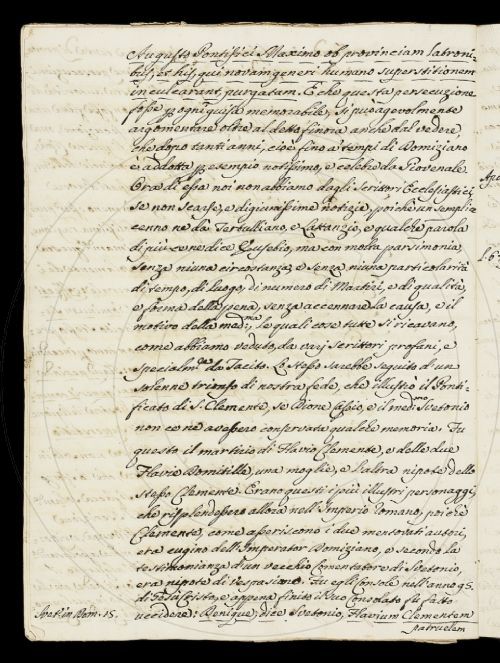 Augusto Pontifici Maximo ob provinciam latroni-
bus, et his, qui novam generi humano superstitionem
inculcarant, purgatam. E che questa persecuzione
fosse p ogni guisa memorabile, si può agevolmente
argomentare oltre al detto finora anche dal vedere,
che dopo tanti anni, cioè fino a' tempi di Domiziano
è addotta p esempio notissimo, e celebre da Giovenale.
Ora di essa noi non abbiamo dagli Scrittori Ecclesiastici
se non scarse, e digiunissime notizie, poichè un semplice
cenno ne dà Tertulliano, e Latanzio, e qualche parola
di più ce ne dice Eusebio, ma con molta parsimonia,
senza niuna circostanza, e senza niuna particolarità
di tempo, di luogo, di numero di Martiri, e di qualità,
e forma della pena, senza accennare la causa, e il
motivo della medma, le quali cose tutte si ricavano,
come abbiamo veduto, da varj Scrittori profani, e
specialmte da Tacito. Lo stesso sarebbe seguito d'un
solenne trionfo di nostra fede, che illustrò il Ponti-
ficato di S. Clemente, se Dione Cassio, e il medmo Svetonio
non ce ne avessero conservata qualche memoria. Fu
questo il martirio di Flavio Clemente, e delle due
Flavie Domitille, una moglie, e l'altra nipote dello
stesso Clemente. Erano questi i più illustri personaggi,
che risplendessero allora nell'Imperio Romano, poichè
Clemente, come asseriscono i due mentovati autori,
era cugino dell'Imperator Domiziano, e secondo la
testimonianza d'un vecchio Comentatore di Svetonio,
era nipote di Vespasiano. Fu egli Console nell'anno 95.
di Gesù Cristo, e appena finito il suo Consolato fu fatto
uccidere: Denique, dice Svetonio, Flavium Clementem
Svet. in Dom. 15.
patruelem